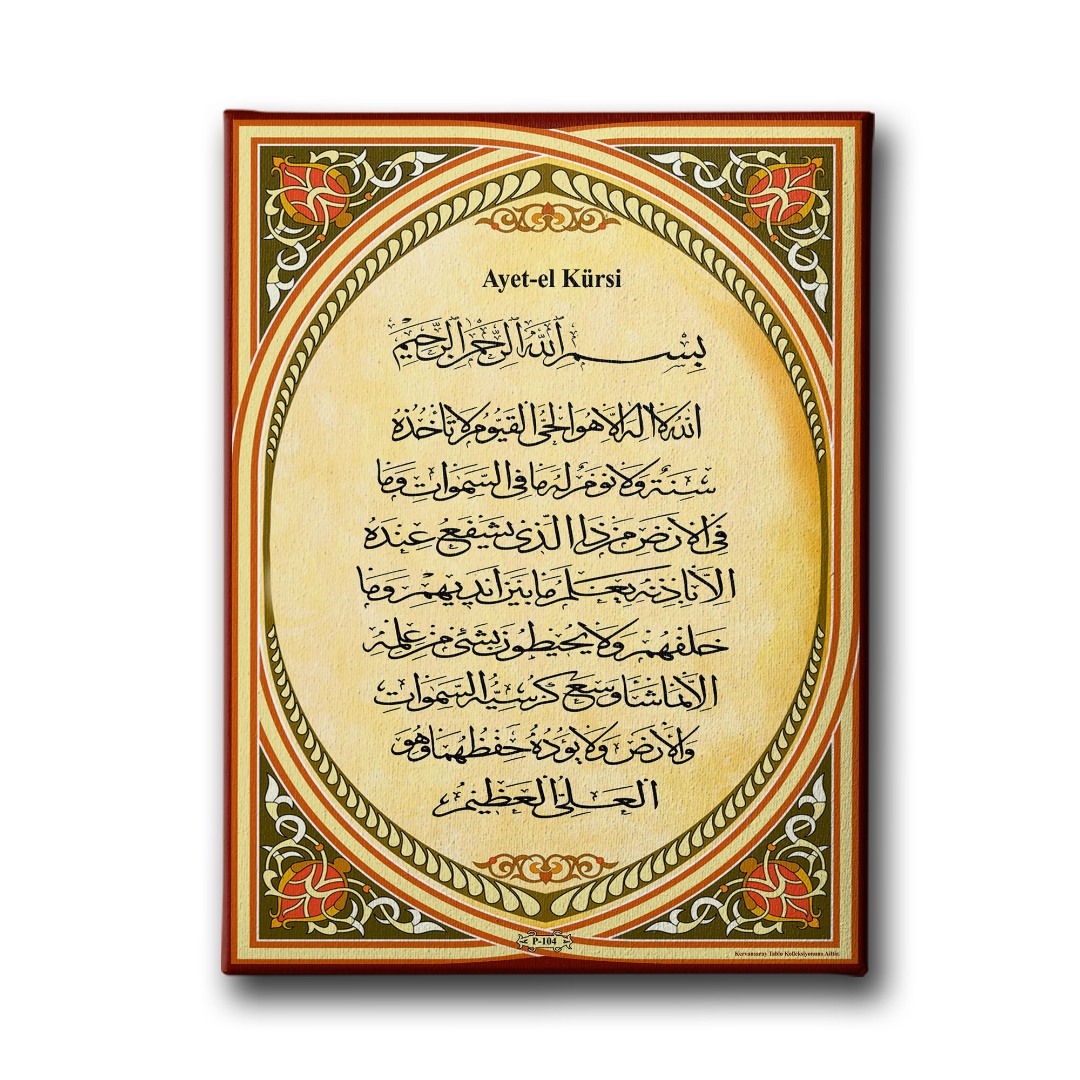 Ayet-el Kürsi
بسم الله الرحمن الرحيم
الله لا اله الا هو الحي القيوم لا تأخذه
سنة ولا نوم له ما في السموات وما
في الارض من ذا الذي يشفع عنده
الا باذنه يعلم ما بين ايديهم وما
خلفهم ولا يحيطون بشئ من علمه
الا بما شا وسع كرسيه السموات
والارض ولا يؤده حفظهما وهو
العلي العظيم
P-104
Kervansaray Tablo Kolleksiyonuna Aittir.